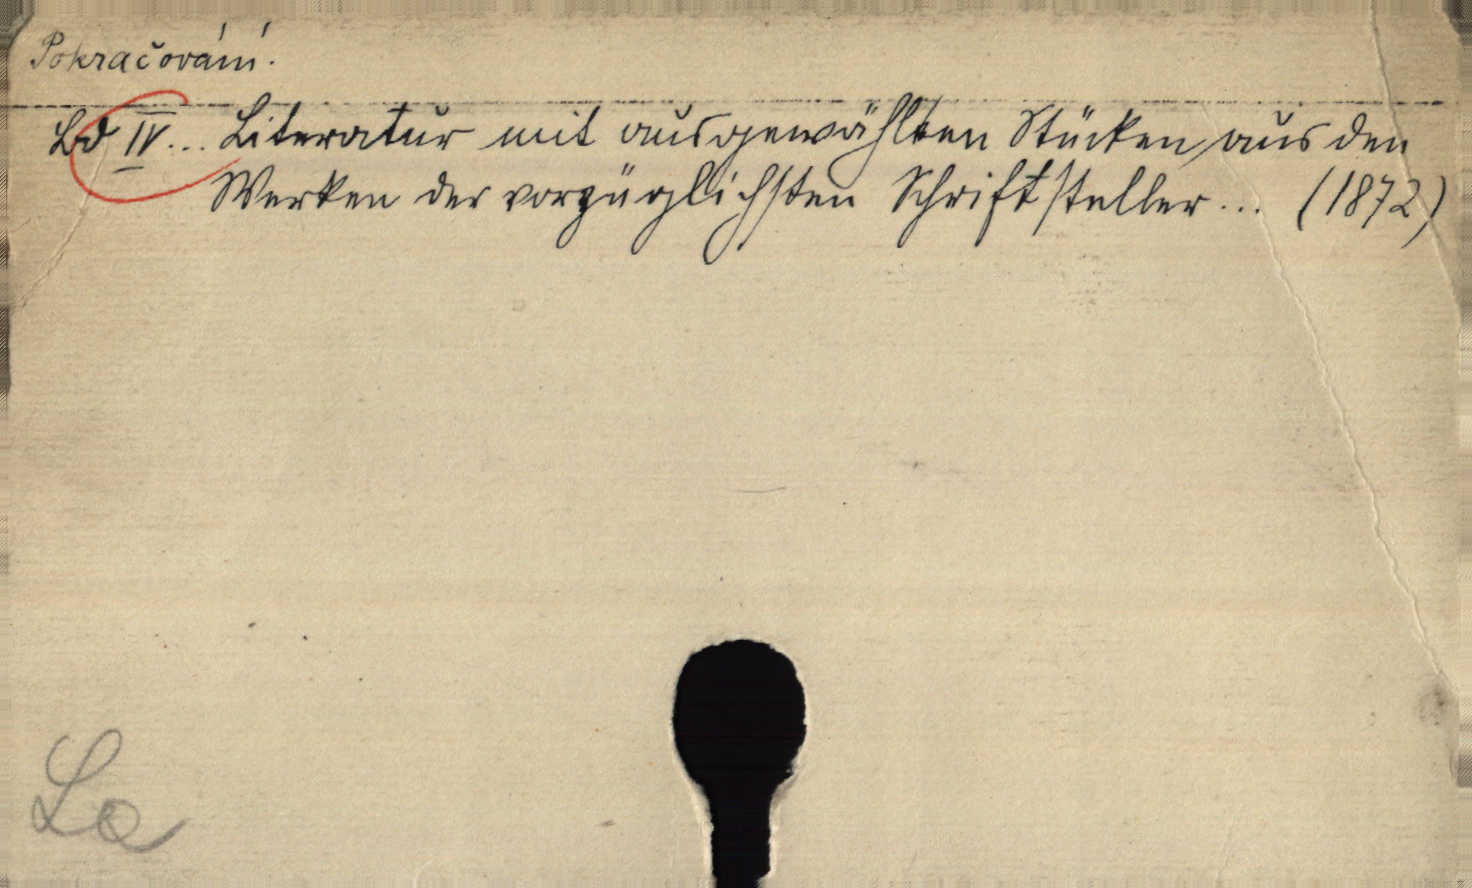 Pokračování.
Bd IV... Literatur mit ausgewählten Stücken aus den
Werken der vorzüglichsten Schriftsteller... (1872)
Lo